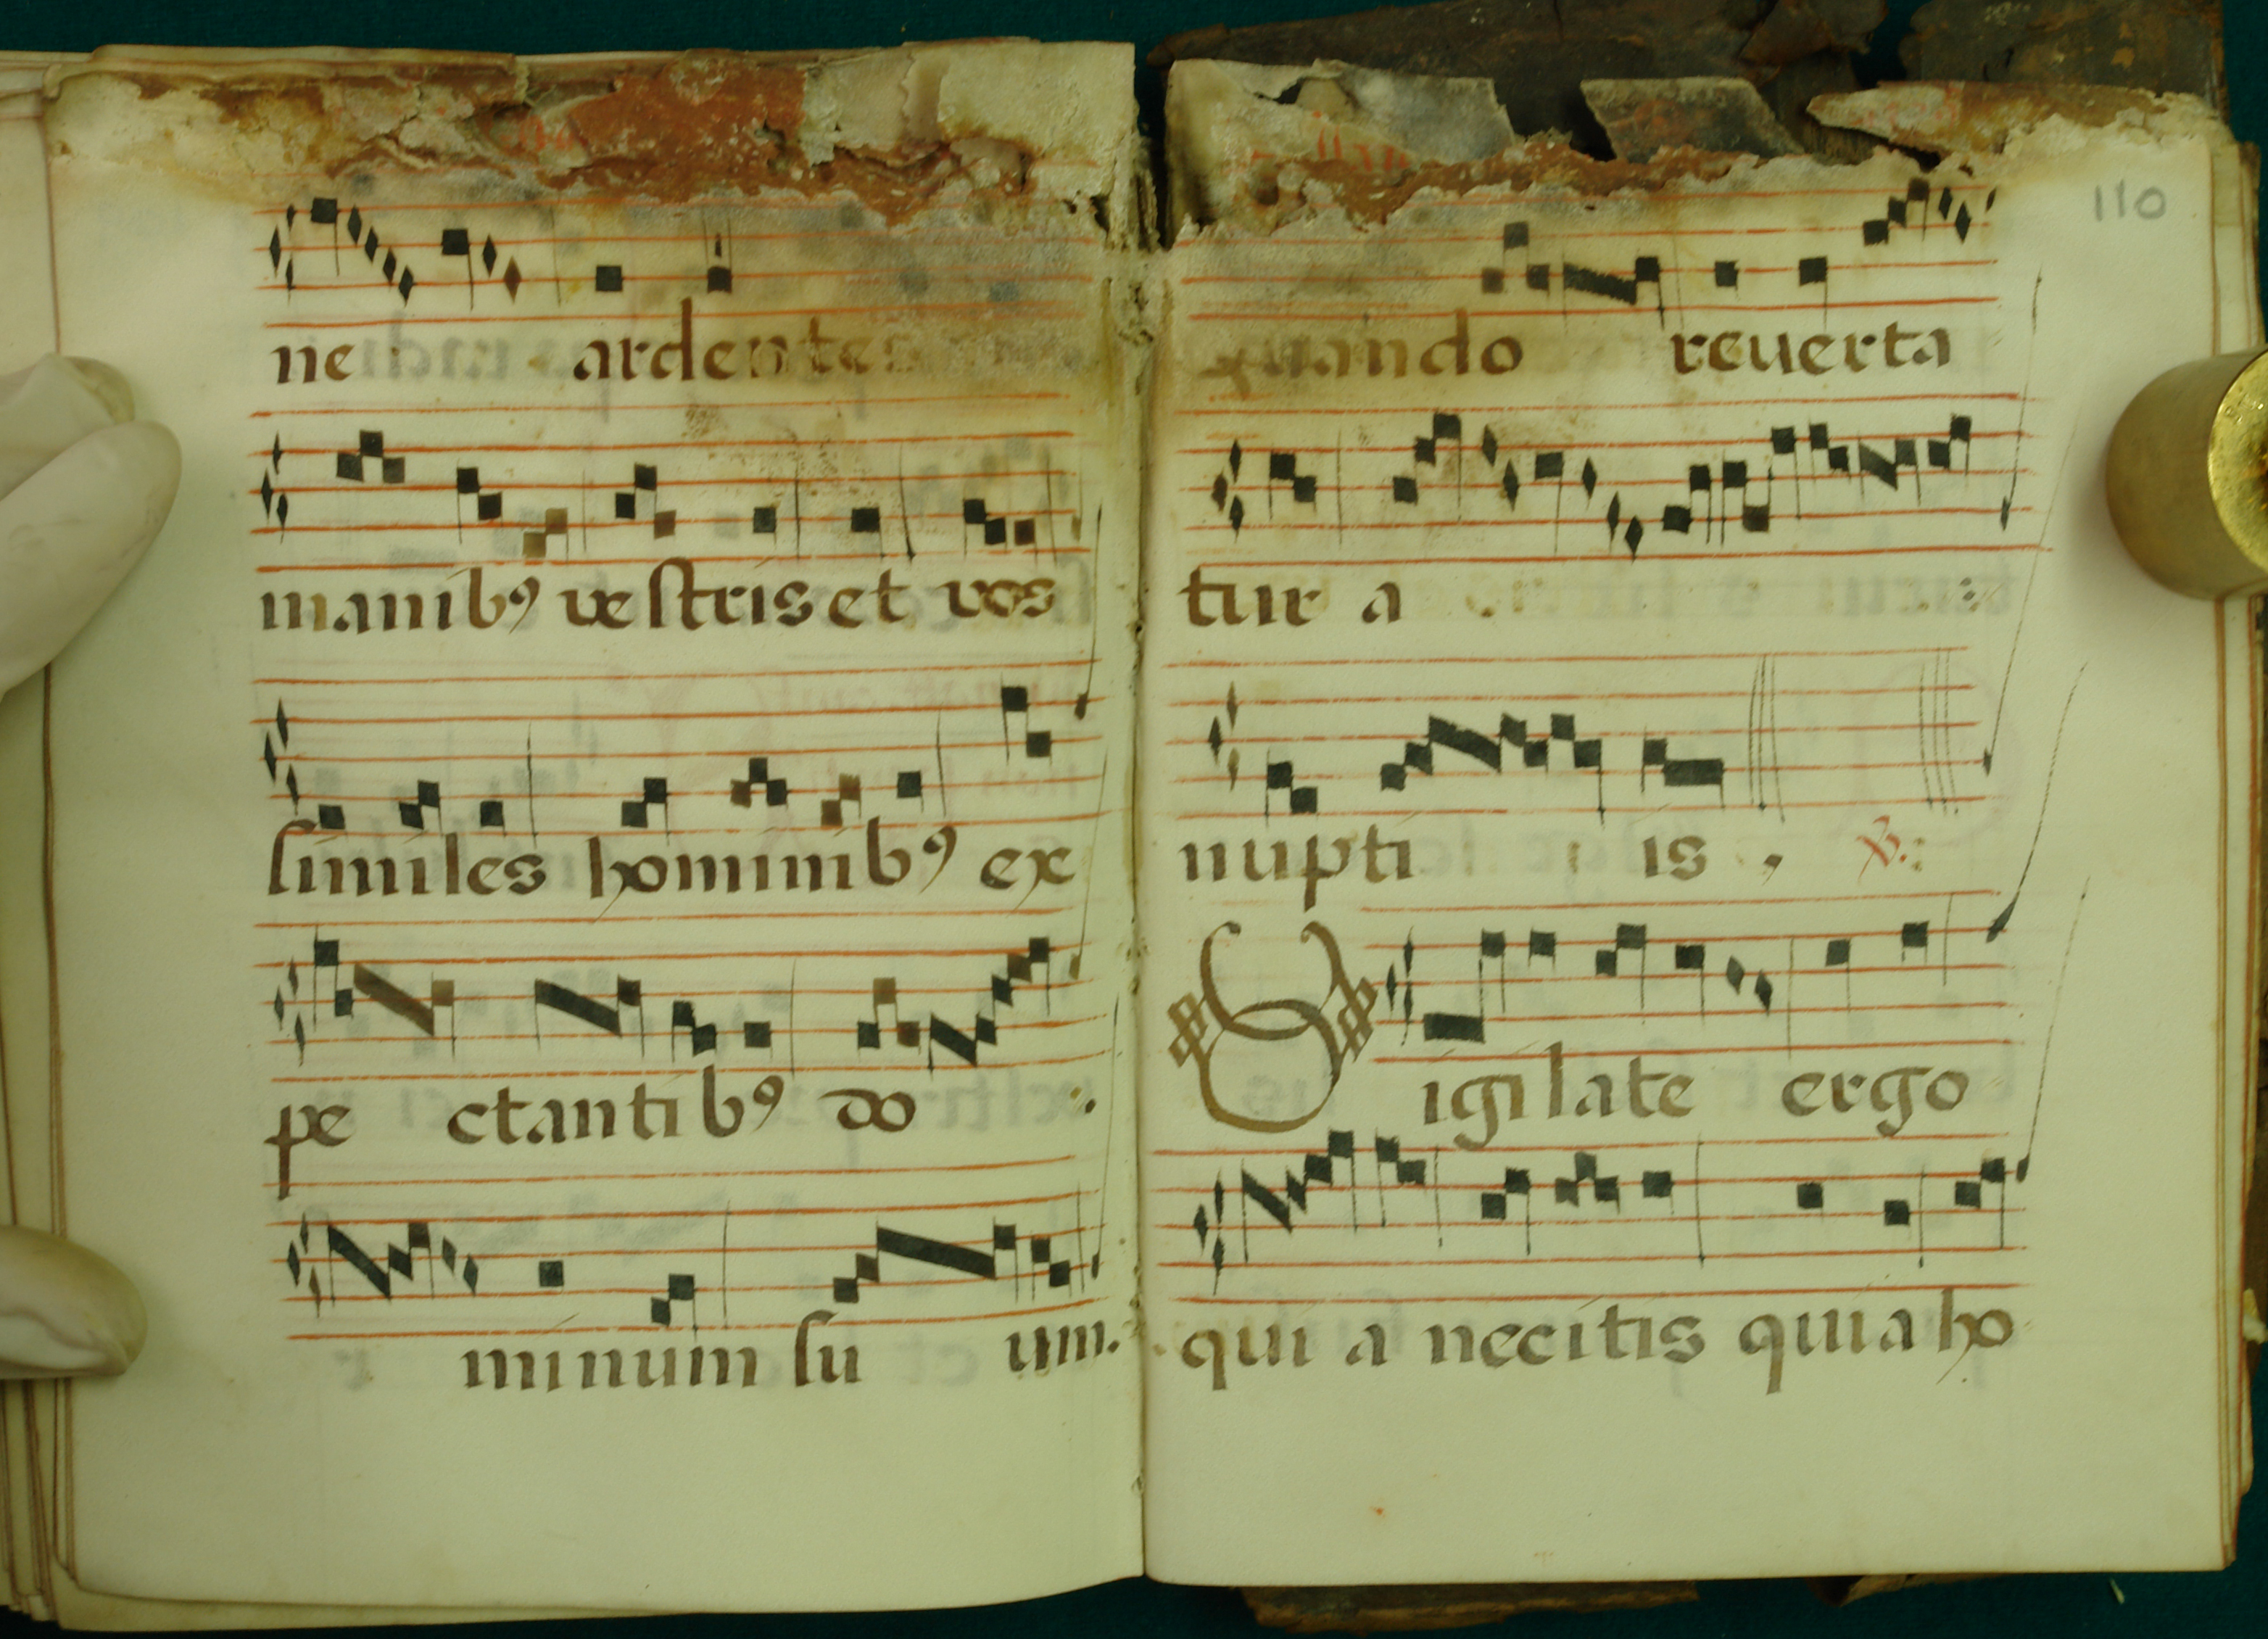 ne ardentes
manibꝰ vestris et vos
similes hominibꝰ ex
pe ctantibꝰ do
minum su um.
110
quando reuerta
tur a
nupti is . ℣.
Vigilate ergo
qui a necitis quia ho